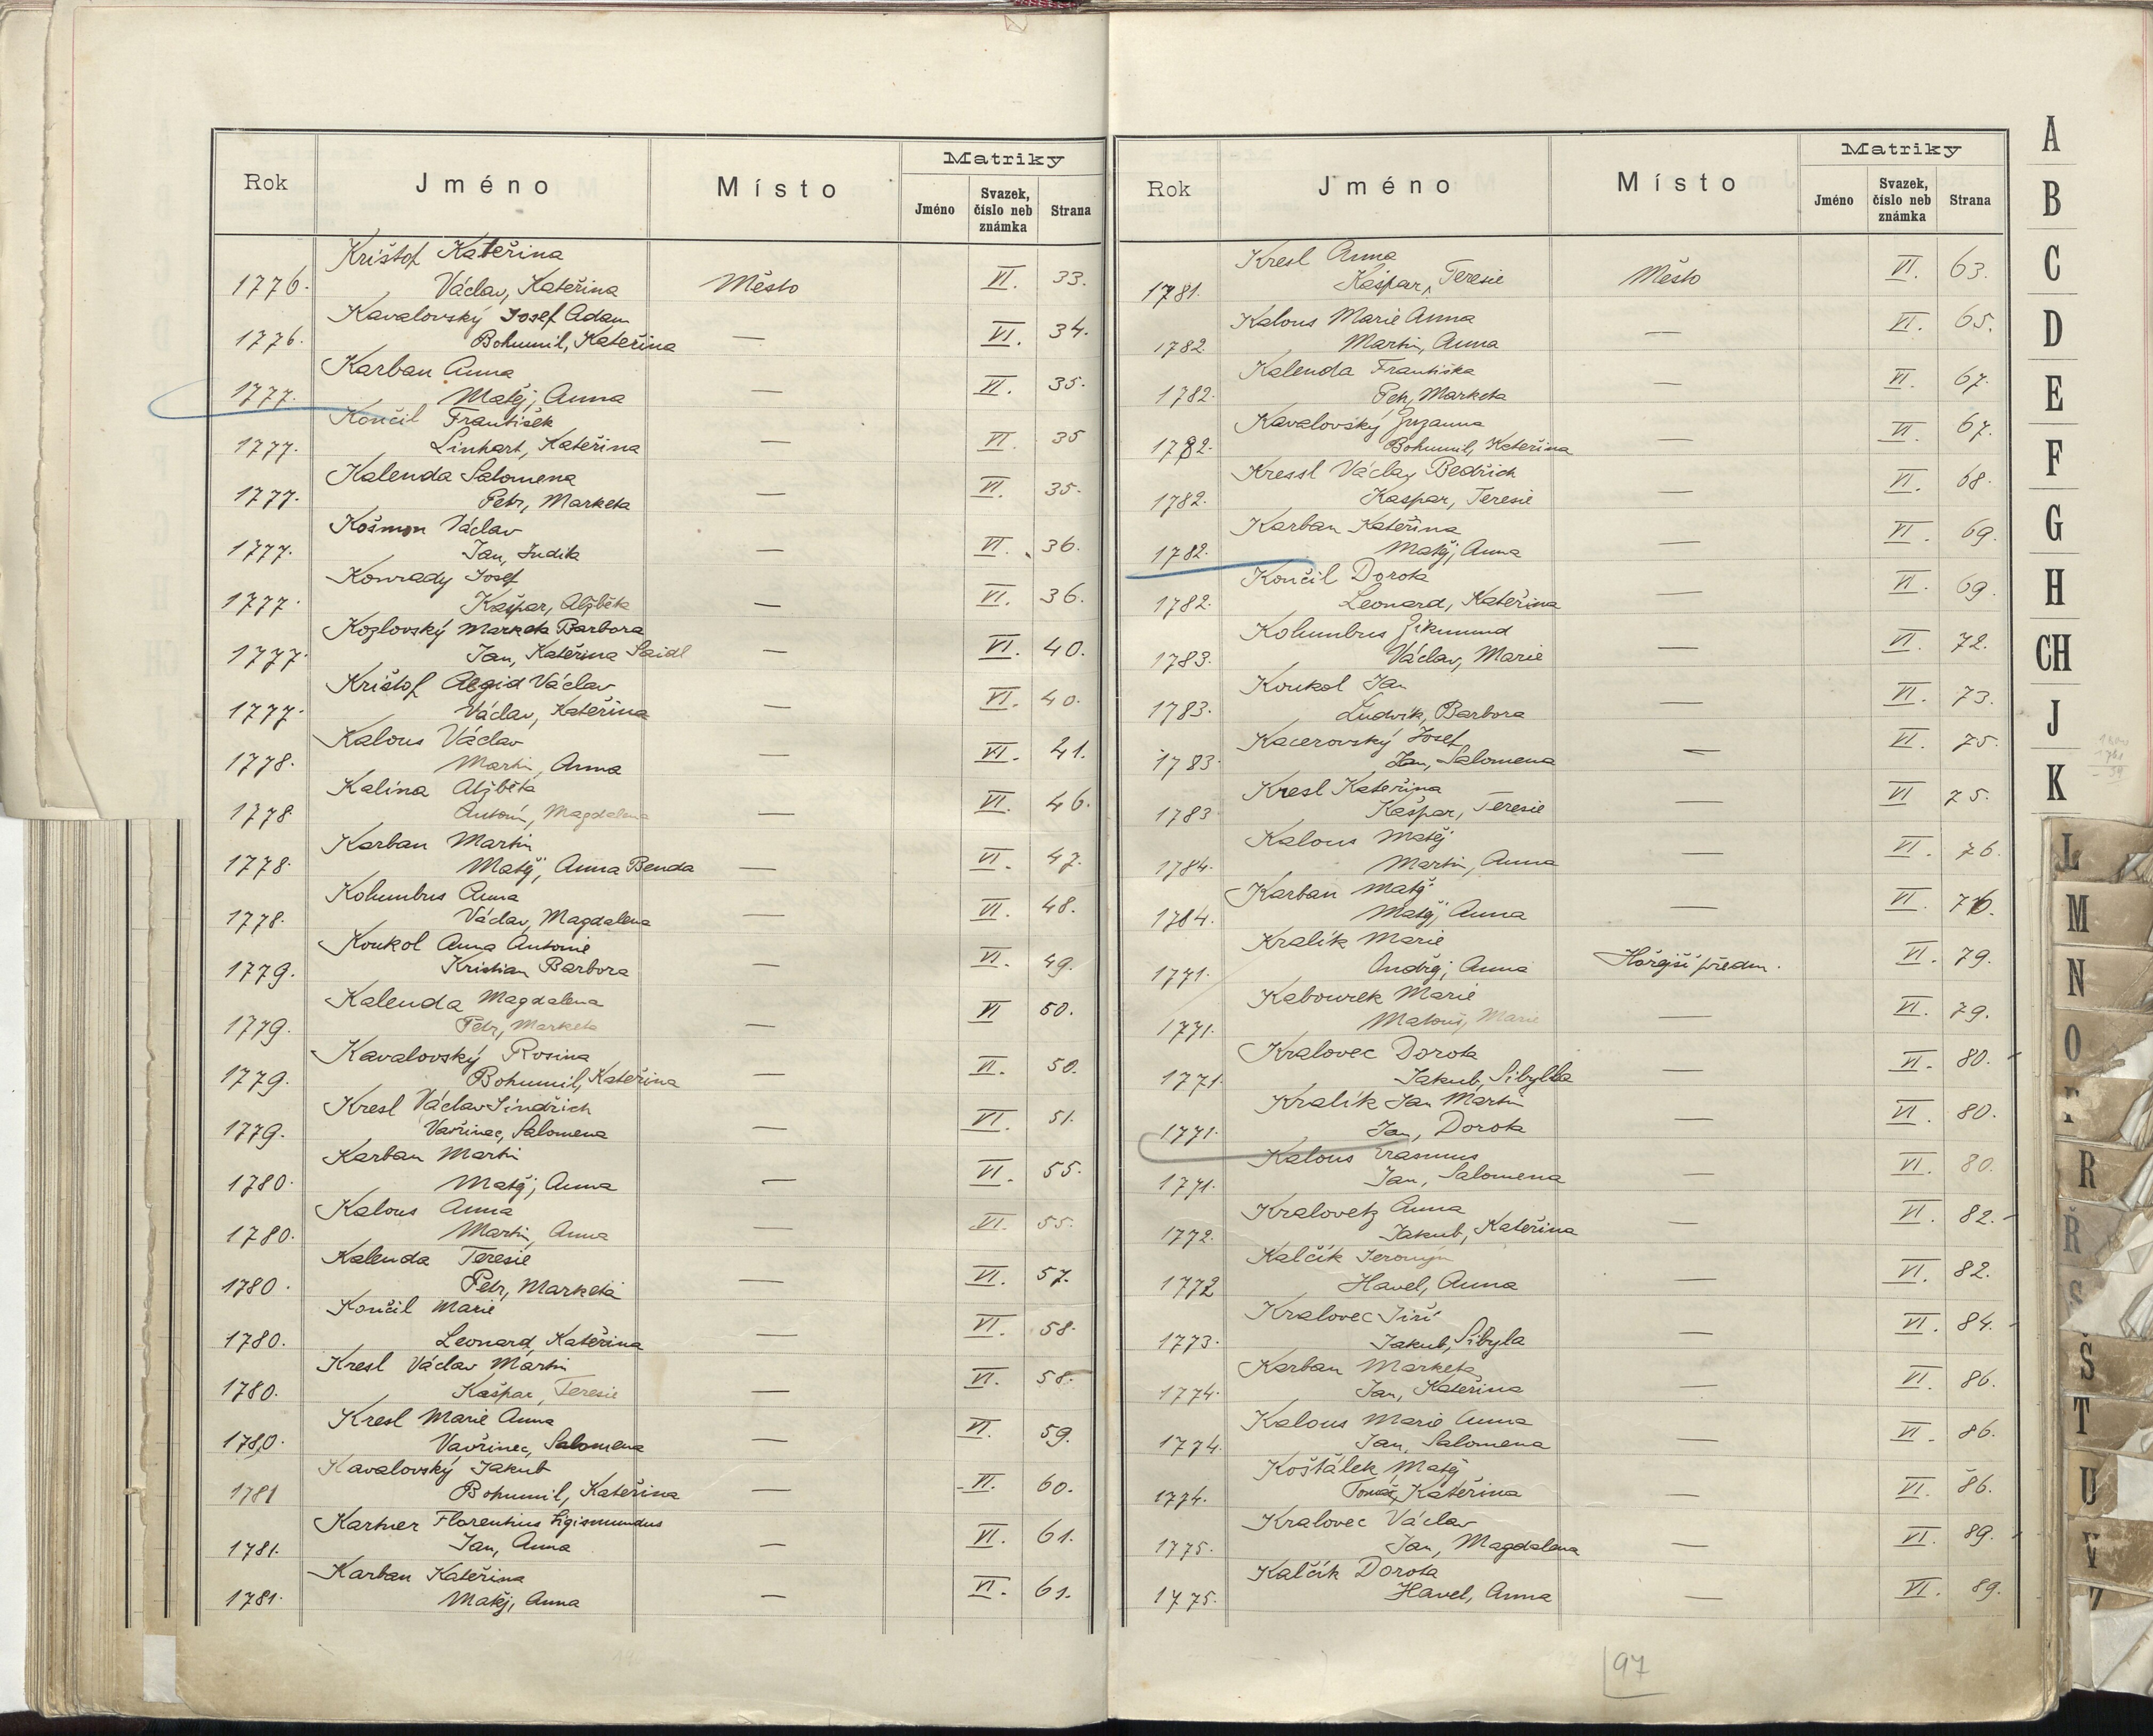 Rok Jméno Místo Matriky
Jméno Svazek, číslo neb známka Strana
Krištof Kateřina
1776. Václav, Kateřina Město VI. 33.
Kavalovský Josef Adam
1776. Bohumil, Kateřina — VI. 34.
Karban Anna
1777. Matěj, Anna — VI. 35.
Končil František
1777. Linhart, Kateřina — VI. 35
Kalenda Salomena
1777. Petr, Marketa — VI. 35.
Košmon Václav
1777. Jan, Judita — VI. 36.
Konrady Josef
1777. Kašpar, Alžběta — VI. 36.
Kozlovský Marketa Barbora
1777. Jan, Kateřina Saidl — VI. 40.
Krištof Aegid Václav
1777. Václav, Kateřina — VI. 40.
Kalous Václav
1778. Martin, Anna — VI. 41.
Kalina Alžběta
1778. Antonín, Magdalena — VI. 46.
Karban Martin
1778. Matěj, Anna Benda — VI. 47.
Kolumbus Anna
1778. Václav, Magdalena — VI. 48.
Koukol Anna Antonie
1779. Kristian Barbora — VI. 49.
Kalenda Magdalena
1779. Petr, Marketa — VI 50.
Kavalovský Rosina
1779. Bohumil, Kateřina — VI. 50.
Kresl Václav Jindřich
1779. Vavřinec, Salomena — VI. 51.
Karban Martin
1780. Matěj, Anna — VI. 55.
Kalous Anna
1780. Martin, Anna — VI. 55.
Kalenda Teresie
1780. Petr, Marketa — VI. 57.
Končil Marie
1780. Leonard, Kateřina — VI. 58.
Kresl Václav Martin
1780. Kašpar, Teresie — VI. 58.
Kresl Marie Anna
1780. Vavřinec, Salomena — VI. 59.
Kavalovský Jakub
1781 Bohumil, Kateřina — VI. 60.
Kartner Florentius Sigismundus
1781. Jan, Anna — VI. 61.
Karban Kateřina
1781. Matěj, Anna — VI. 61.
Rok Jméno Místo Matriky
Jméno Svazek, číslo neb známka Strana
Kresl Anna
1781. Kašpar, Teresie Město VI. 63.
Kalous Marie Anna
1782. Martin, Anna — VI. 65.
Kalenda Františka
1782. Petr, Marketa — VI. 67.
Kavalovský Zuzanna
1782. Bohumil, Kateřina — VI. 67.
Kressl Václav Bedřich
1782. Kaspar, Teresie — VI. 68.
Karban Kateřina
1782. Matěj, Anna — VI. 69.
Končil Dorota
1782. Leonard, Kateřina — VI. 69.
Kolumbus Zikmund
1783. Václav, Marie — VI. 72.
Koukol Jan
1783. Ludvík, Barbora — VI. 73.
Kacerovský Josef
1783. Jan, Salomena — VI. 75.
Kresl Kateřina
1783 Kašpar, Teresie — VI 75.
Kalous Matěj
1784. Martin, Anna — VI. 76.
Karban Matěj
1784. Matěj, Anna — VI. 76.
Kralík Marie
1771. Ondřej, Anna Hořejší předm. VI. 79.
Kabourek Marie
1771. Matouš, Marie — VI. 79.
Kralovec Dorota
1771. Jakub, Sibylla — VI. 80.
Kralík Jan Martin
1771. Jan, Dorota — VI. 80.
Kalous Erasmus
1771. Jan, Salomena — VI. 80.
Kralovetz Anna
1772. Jakub, Kateřina — VI. 82.
Kalčík Jeroným
1772 Havel, Anna — VI. 82.
Kralovec Jiří
1773. Jakub, Sibyla — VI. 84.
Karban Marketa
1774. Jan, Kateřina — VI. 86.
Kalous Marie Anna
1774. Jan, Salomena — VI. 86.
Košťálek Matěj
1774. Tomáš, Kateřina — VI. 86.
Kralovec Václav
1775. Jan, Magdalena — VI. 89.
Kalčík Dorota
1775. Havel, Anna — VI. 89.
97
A
B
C
D
E
F
G
H
CH
J
K
L
M
N
O
R
Ř
S
Š
T
U
V